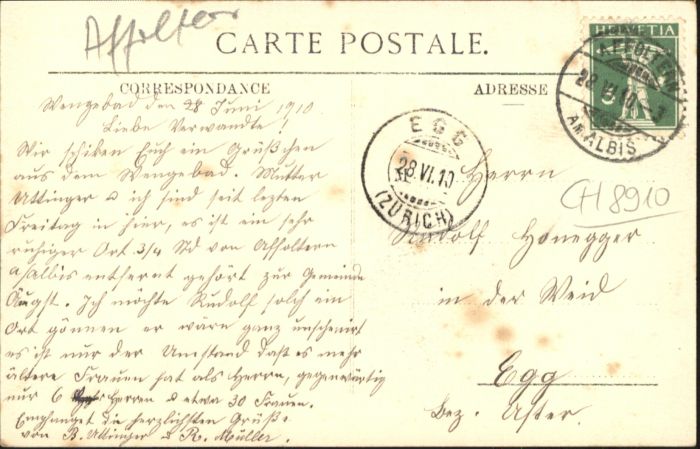 Affoltern
CARTE POSTALE.
CORRESPONDANCE
ADRESSE
HELVETIA
AFFOLTERN
28.VI.10
AM ALBIS
5
EGG
28.VI.10
(ZÜRICH)
CH 8910
Wengebad den 28 Juni 1910
Liebe Verwandte!
Wir schiken Euch ein Grüßchen
aus dem Wengebad. Mutter
Uttinger u ich sind seit lezten
Freitag in hier, es ist ein sehr
ruhiger Ort 3/4 Std von Affoltern
a/albis entfernt gehört zur Gemeinde
Äugst. Ich möchte Rudolf solch ein
Ort gönnen er wäre ganz unscheniert
es ist nur der Umstand daß es mehr
ältere Frauen hat als Herrn, gegenwärtig
nur 6 Herren u etwa 30 Frauen.
Empfanget die herzlichsten Grüße
von B. Uttinger u R. Müller.
Herrn
Rudolf Honegger
in der Weid
Egg
Bez. Uster.